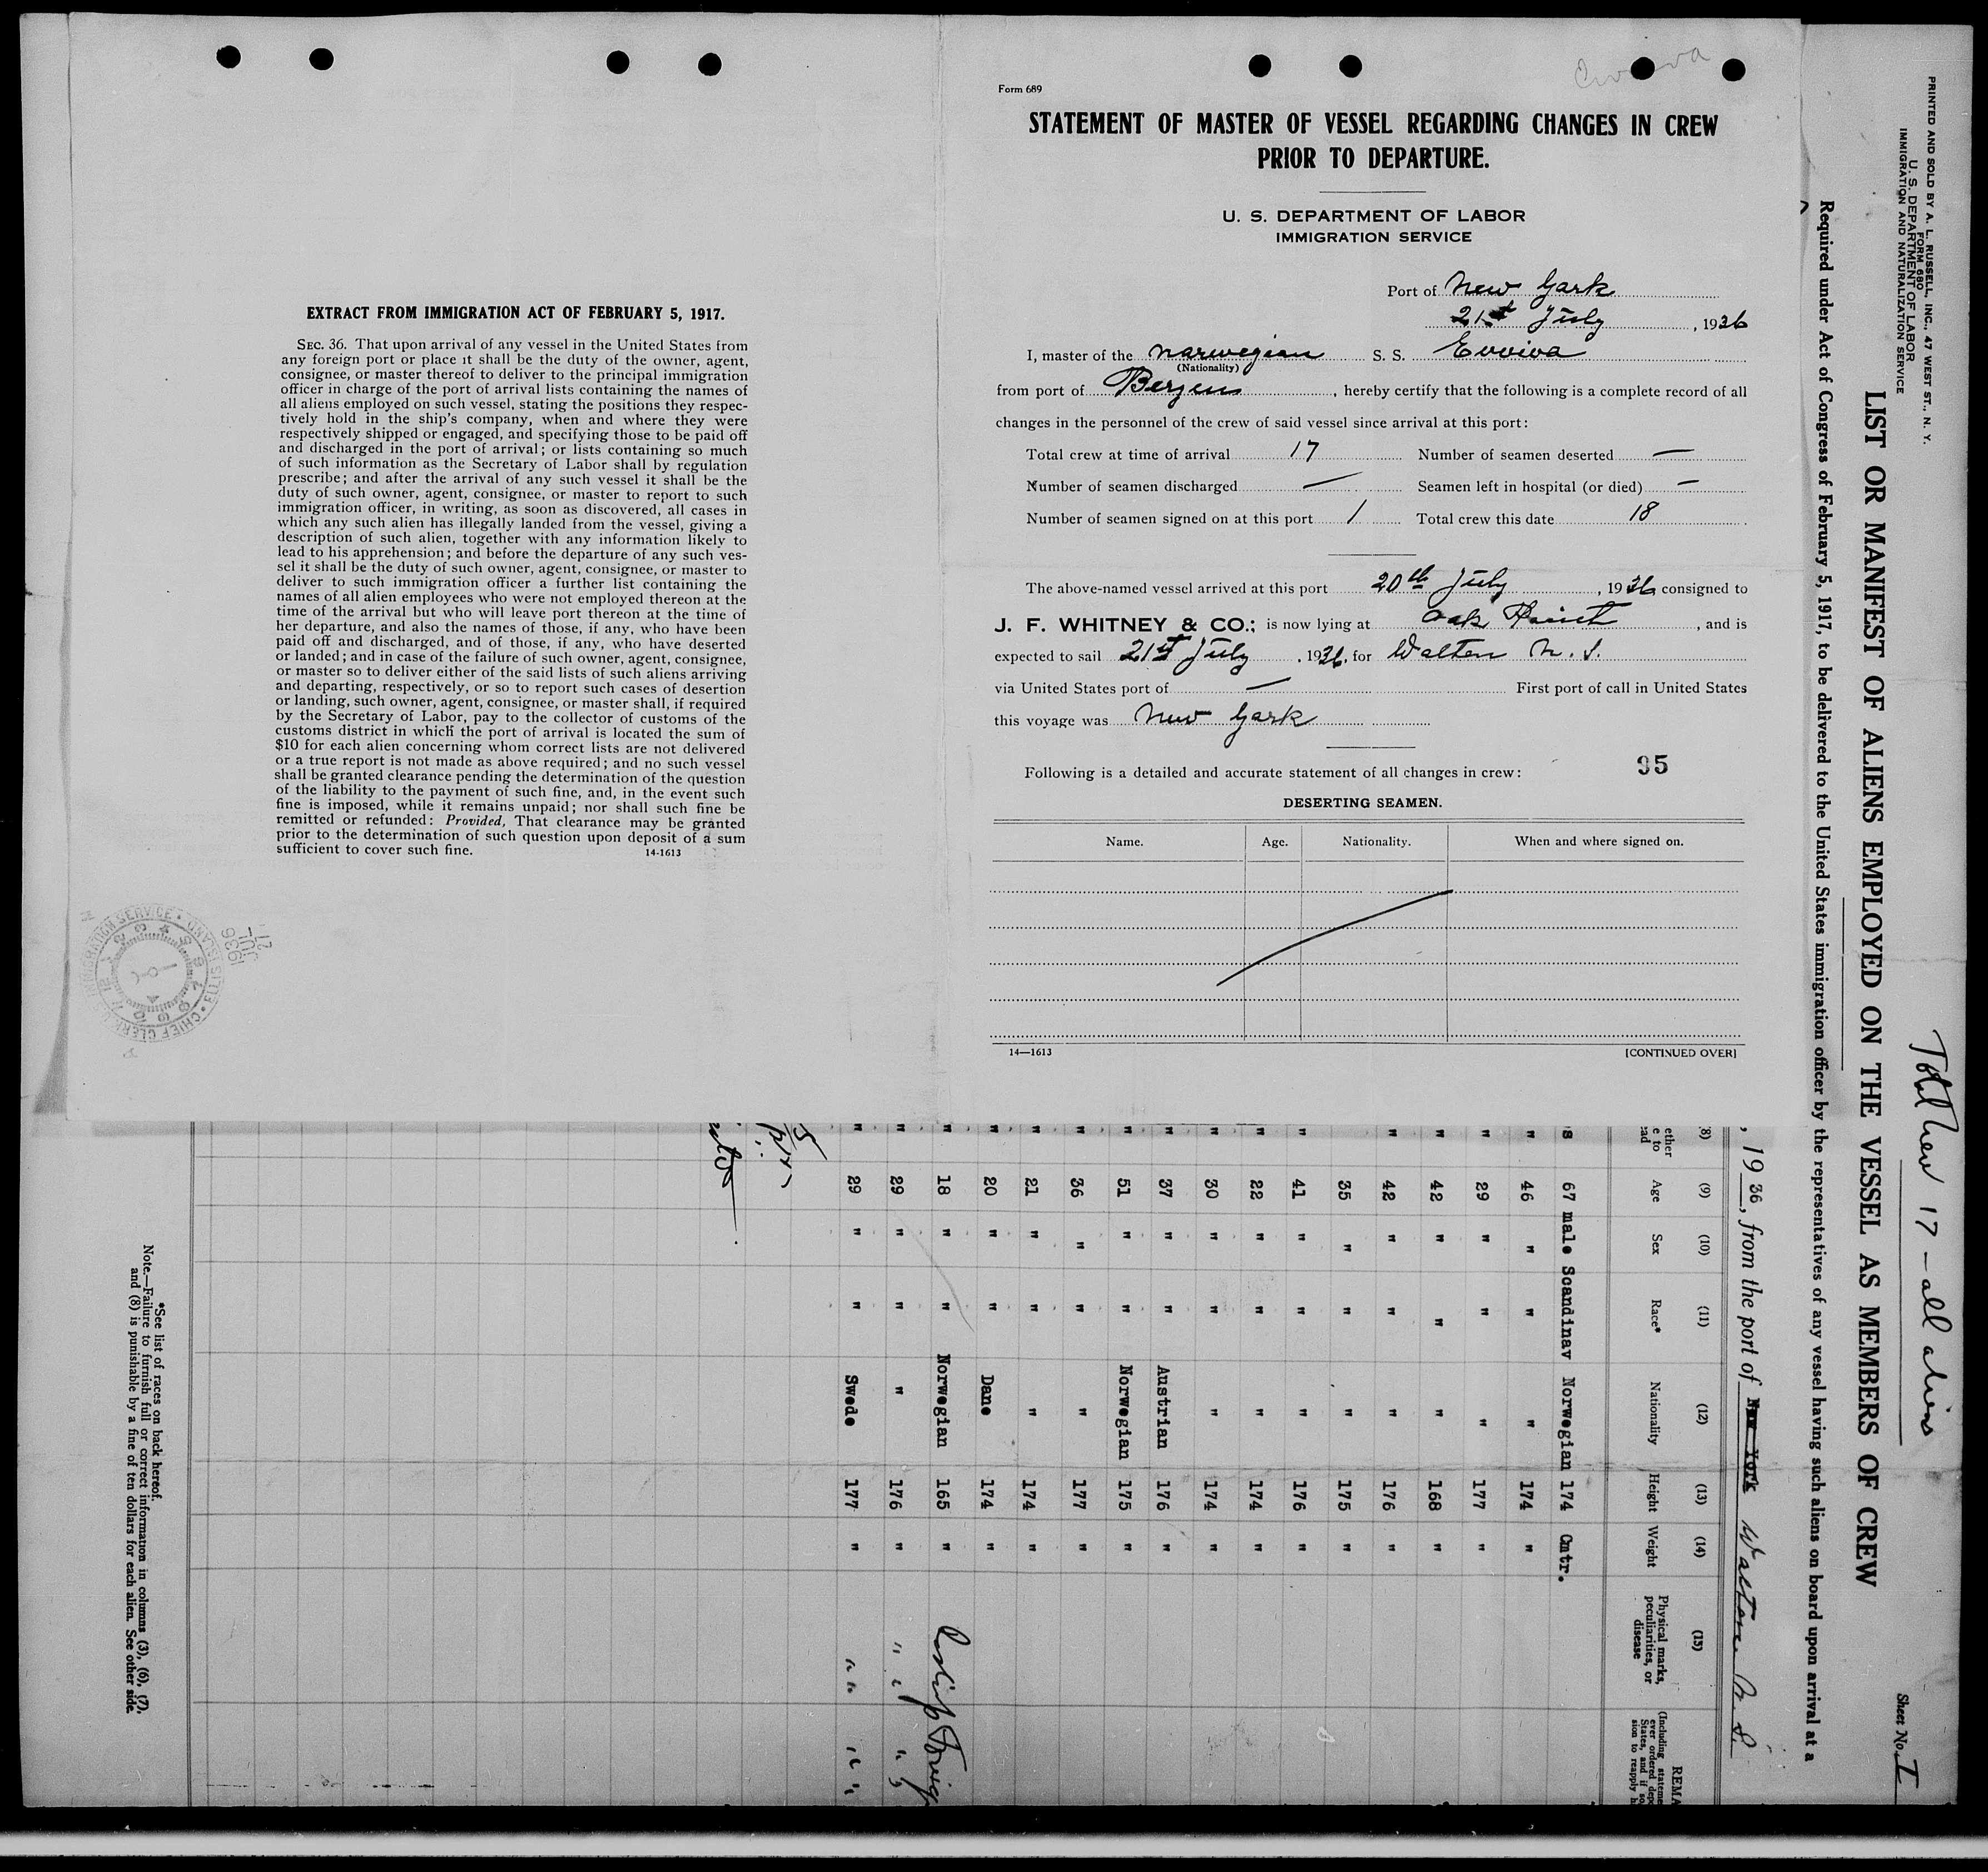 EXTRACT FROM IMMIGRATION ACT OF FEBRUARY 5, 1917.
SEC. 36. That upon arrival of any vessel in the United States from
any foreign port or place it shall be the duty of the owner, agent,
consignee, or master thereof to deliver to the principal immigration
officer in charge of the port of arrival lists containing the names of
all aliens employed on such vessel, stating the positions they respec-
tively hold in the ship's company, when and where they were
respectively shipped or engaged, and specifying those to be paid off
and discharged in the port of arrival; or lists containing so much
of such information as the Secretary of Labor shall by regulation
prescribe; and after the arrival of any such vessel it shall be the
duty of such owner, agent, consignee, or master to report to such
immigration officer, in writing, as soon as discovered, all cases in
which any such alien has illegally landed from the vessel, giving a
description of such alien, together with any information likely to
lead to his apprehension; and before the departure of any such ves-
sel it shall be the duty of such owner, agent, consignee, or master to
deliver to such immigration officer a further list containing the
names of all alien employees who were not employed thereon at the
time of the arrival but who will leave port thereon at the time of
her departure, and also the names of those, if any, who have been
paid off and discharged, and of those, if any, who have deserted
or landed; and in case of the failure of such owner, agent, consignee,
or master so to deliver either of the said lists of such aliens arriving
and departing, respectively, or so to report such cases of desertion
or landing, such owner, agent, consignee, or master shall, if required
by the Secretary of Labor, pay to the collector of customs of the
customs district in which the port of arrival is located the sum of
$10 for each alien concerning whom correct lists are not delivered
or a true report is not made as above required; and no such vessel
shall be granted clearance pending the determination of the question
of the liability to the payment of such fine, and, in the event such
fine is imposed, while it remains unpaid; nor shall such fine be
remitted or refunded: Provided, That clearance may be granted
prior to the determination of such question upon deposit of a sum
sufficient to cover such fine.
14-1613
IMMIGRATION SERVICE • ELLIS ISLAND • CHIEF CLERK'S
1936 JUL 21
Form 689
STATEMENT OF MASTER OF VESSEL REGARDING CHANGES IN CREW
PRIOR TO DEPARTURE.
U. S. DEPARTMENT OF LABOR
IMMIGRATION SERVICE
Port of New York
21st July, 1936
I, master of the Norwegian S. S. Evviva
(Nationality)
from port of Bergen, hereby certify that the following is a complete record of all
changes in the personnel of the crew of said vessel since arrival at this port:
Total crew at time of arrival 17 Number of seamen deserted —
Number of seamen discharged — Seamen left in hospital (or died) —
Number of seamen signed on at this port 1 Total crew this date 18
The above-named vessel arrived at this port 20th July, 1936 consigned to
J. F. WHITNEY & CO.; is now lying at Oak Point, and is
expected to sail 21st July, 1936, for Walton N. S.
via United States port of — First port of call in United States
this voyage was New York
Following is a detailed and accurate statement of all changes in crew: 95
DESERTING SEAMEN.
Name. Age. Nationality. When and where signed on.
14—1613 [CONTINUED OVER]
PRINTED AND SOLD BY A. L. RUSSELL, INC., 47 WEST ST., N. Y.
FORM 680
U. S. DEPARTMENT OF LABOR
IMMIGRATION AND NATURALIZATION SERVICE
Total crew 17 – all aliens
Sheet No. I
LIST OR MANIFEST OF ALIENS EMPLOYED ON THE VESSEL AS MEMBERS OF CREW
Required under Act of Congress of February 5, 1917, to be delivered to the United States immigration officer by the representatives of any vessel having such aliens on board upon arrival at a
, 1936, from the port of New York Walton N. S.
(8) (9) (10) (11) (12) (13) (14) (15)
Age Sex Race* Nationality Height Weight Physical marks, peculiarities, or disease
67 male Scandinav Norwegian 174 Cntr.
" 46 " " " 174 "
" 29 " " " 177 "
" 42 " " " 168 "
" 42 " " " 176 "
35 " " " 175 "
" 41 " " " 176 "
" 22 " " " 174 "
" 30 " " " 174 "
" 37 " " Austrian 176 "
" 51 " " Norwegian 175 "
" 36 " " " 177 "
" 21 " " " 174 "
" 20 " " Dane 174 "
" 18 " " Norwegian 165 "
" 29 " " " 176 " " " " "
" 29 " " Swede 177 " " " " "
*See list of races on back hereof.
Note.—Failure to furnish full or correct information in columns (3), (6), (7),
and (8) is punishable by a fine of ten dollars for each alien. See other side.